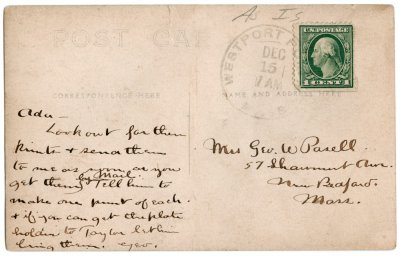 As Is
POST CAR
WESTPORT P
DEC
15
7 AM
M
U.S. POSTAGE
1 CENT 1
CORRESPONDENCE HERE
NAME AND ADDRESS HERE
Ada—
Look out for them
prints & send them
to me as soon as you
get them by mail. & Tell him to
make one print of each.
& if you can get the plate
holder to Taylor let him
bring them. Geo.
Mrs Geo. W Pasell.
57 Shawmut Ave.
New Bedford.
Mass.